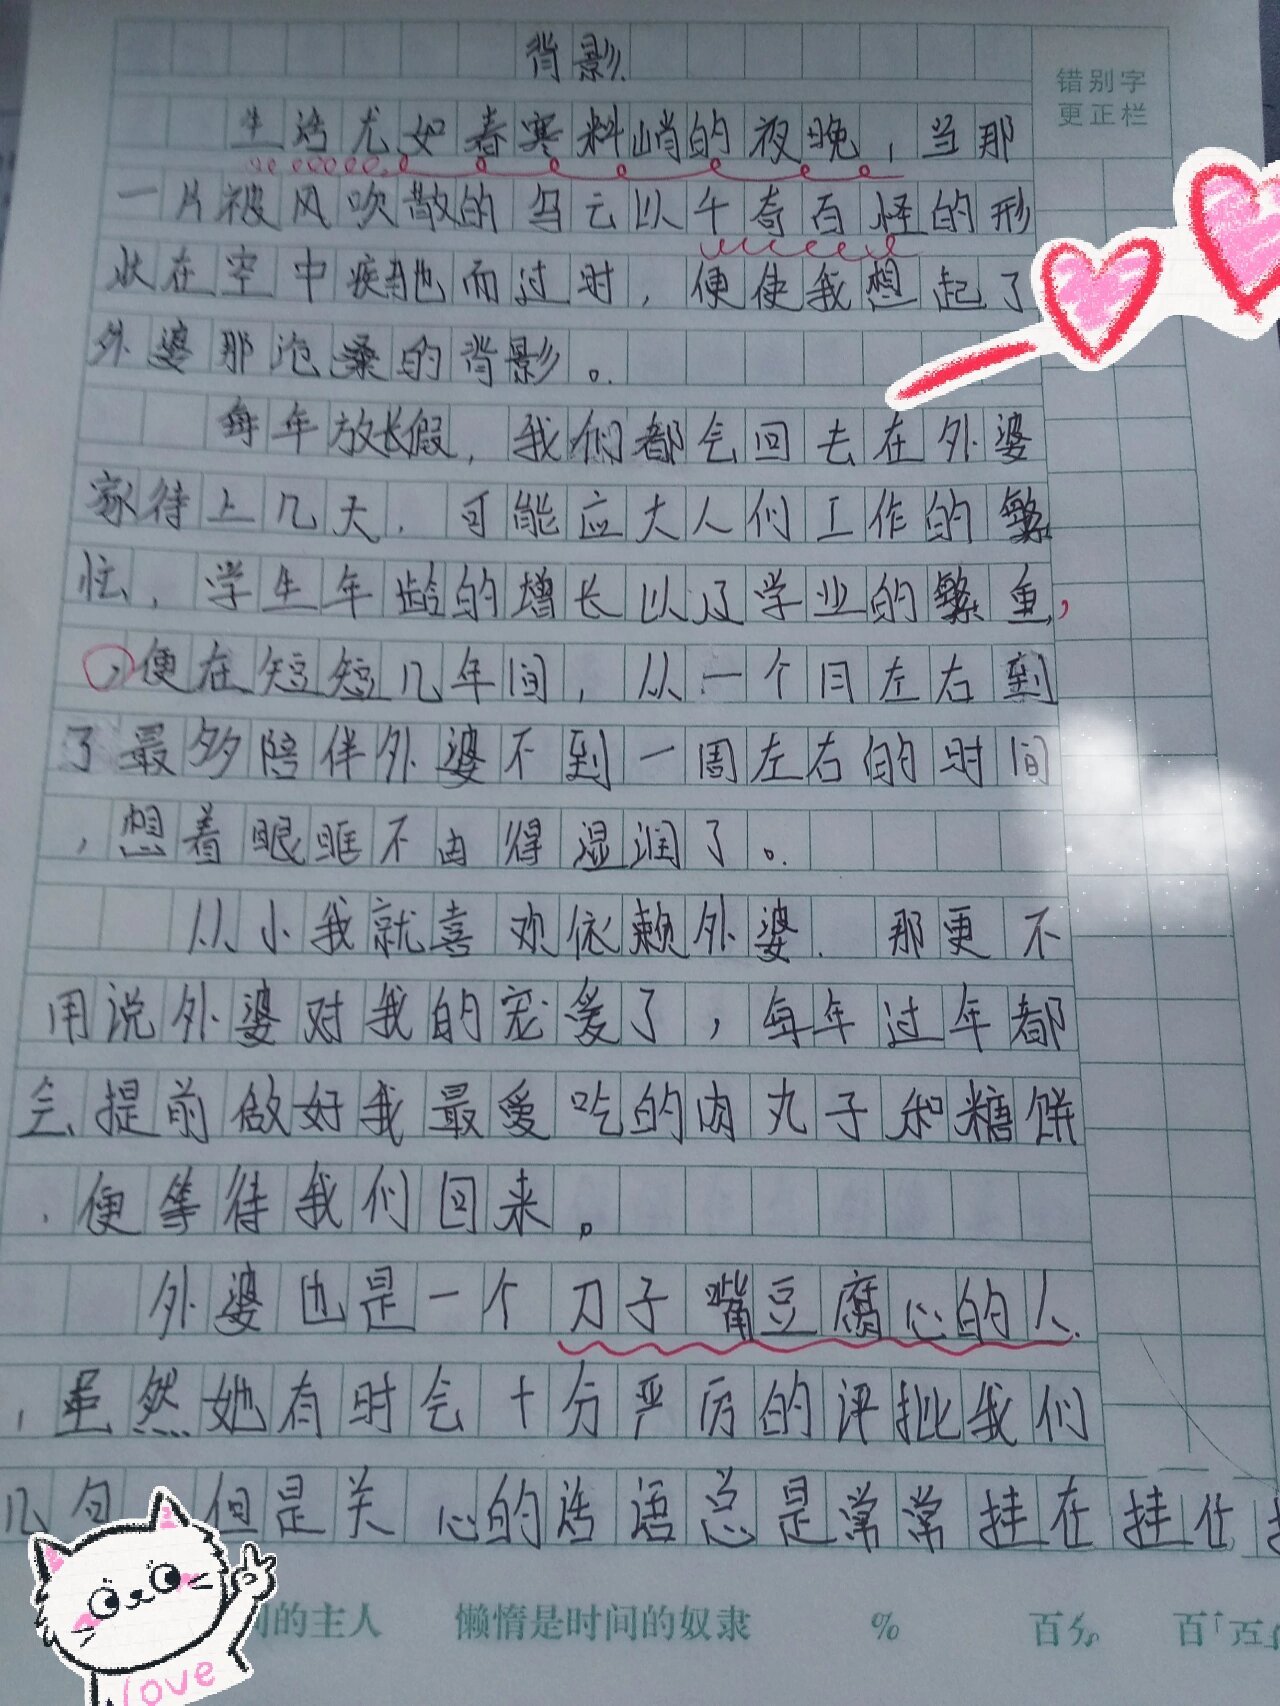 背影
错别字
更正栏
生活尤如春寒料峭的夜晚，当那
一片被风吹散的乌云以千奇百怪的形
状在空中疾驰而过时，便使我想起了
外婆那沧桑的背影。
每年放长假，我们都会回去在外婆
家待上几天，可能应大人们工作的繁
忙，学生年龄的增长以及学业的繁重，
，便在短短几年间，从一个月左右到
了最多陪伴外婆不到一周左右的时间
，想着眼眶不由得湿润了。
从小我就喜欢依赖外婆，那更不
用说外婆对我的宠爱了，每年过年都
会提前做好我最爱吃的肉丸子和糖饼
，便等待我们回来。
外婆也是一个刀子嘴豆腐心的人
，虽然她有时会十分严厉的评批我们
几句，但是关心的话语总是常常挂在挂
的主人 懒惰是时间的奴隶 % 百分
love